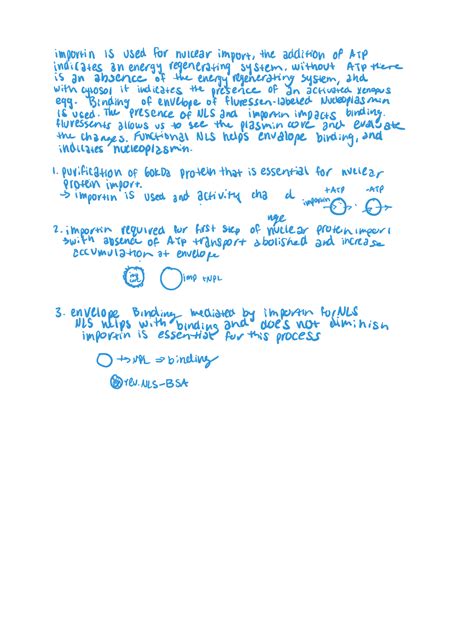 importin is used for nuclear import, the addition of ATP
indicates an energy regenerating system. without ATP there
is an absence of the energy regenerating system, and
with cytosol it indicates the presence of an activated xenopus
egg. Binding of envelope of fluressen-labeled nucleoplasmin
is used. The presence of NLS and importin impacts binding.
fluressents allows us to see the plasmin core and evaluate
the changes. Functional NLS helps envelope binding, and
indicates nucleoplasmin.
1. purification of 60kDa protein that is essential for nuclear
protein import.
→ importin is used and activity cha d
nge
importin +ATP -ATP
2. importin required for first step of nuclear protein import
→with absence of ATP transport abolished and increase
accumulation at envelope
imp +NPL
3. envelope Binding mediated by importin for NLS
NLS helps with binding and does not diminish
importin is essential for this process
→NPL ⇒ binding
rev.NLS-BSA